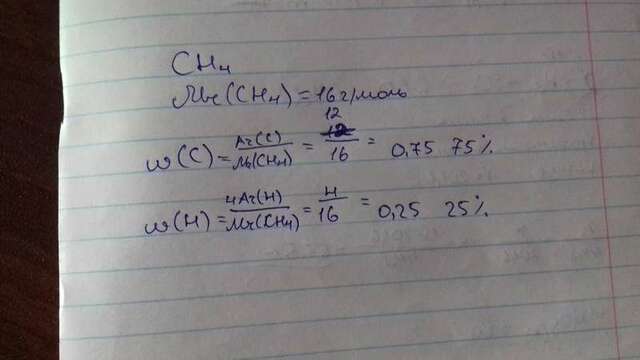 CH₄
Mr(CH₄) = 16 г/моль
w(C) = Ar(C)/Mr(CH₄) = 12/16 = 0,75 75%
w(H) = 4Ar(H)/Mr(CH₄) = 4/16 = 0,25 25%